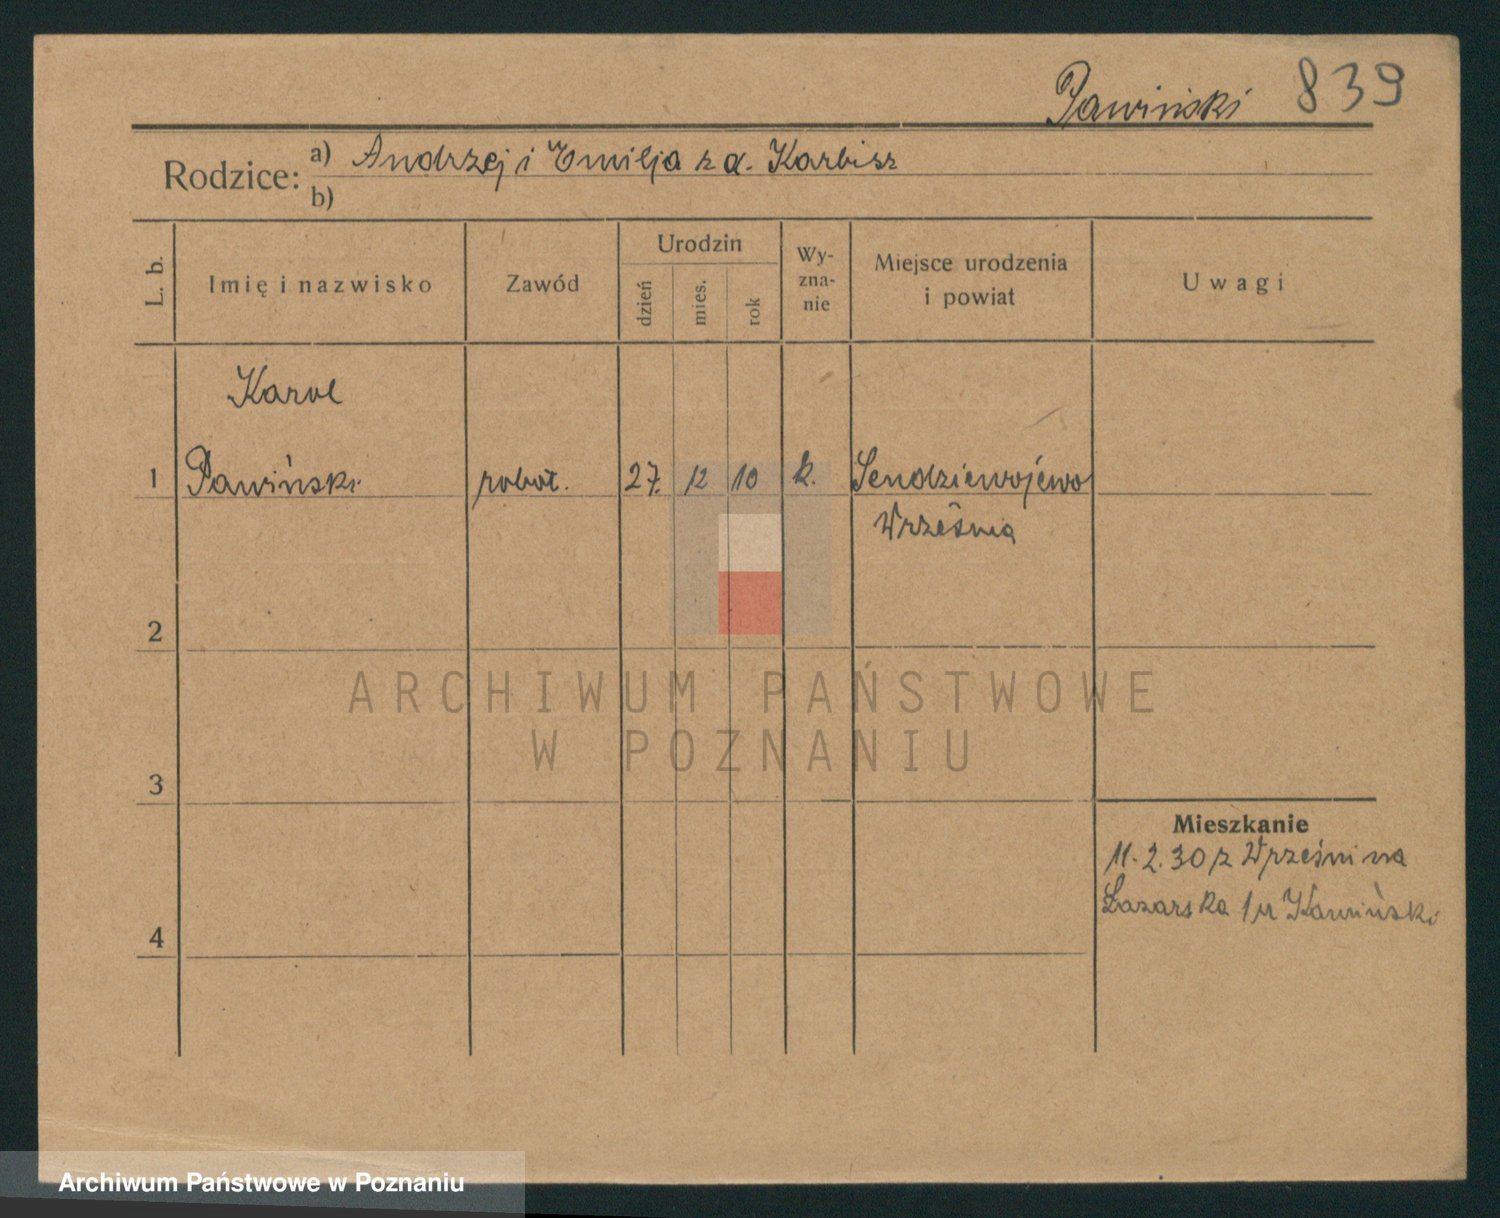 Pawiński 839
Rodzice: a) Andrzej i Emilja z d. Karbisz
b)
L. b. Imię i nazwisko Zawód Urodzin dzień mies. rok Wyznanie Miejsce urodzenia i powiat Uwagi
Karol
1 Pawiński robot. 27. 12 10 k. Sendziewojewo
Września
2
ARCHIWUM PAŃSTWOWE
W POZNANIU
3
Mieszkanie
11.2.30 z Wrześni na
Łazarska 1 u Kawiński
4
Archiwum Państwowe w Poznaniu